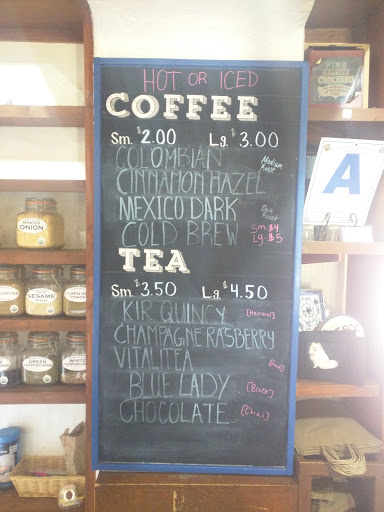 HOT OR ICED
COFFEE
Sm. $2.00 Lg. $3.00
COLOMBIAN Medium Roast
CINNAMON HAZEL
MEXICO DARK Dark Roast
COLD BREW Sm. $4
Lg. $5
TEA
Sm. $3.50 Lg. $4.50
KIR QUINCY [Herbal]
CHAMPAGNE RASBERRY
VITALITEA
BLUE LADY [Black]
CHOCOLATE [Chai]
A
MINCED
ONION
SESAME
GREEN
PEPPERCORNS
WHITE
PEPPERCORNS